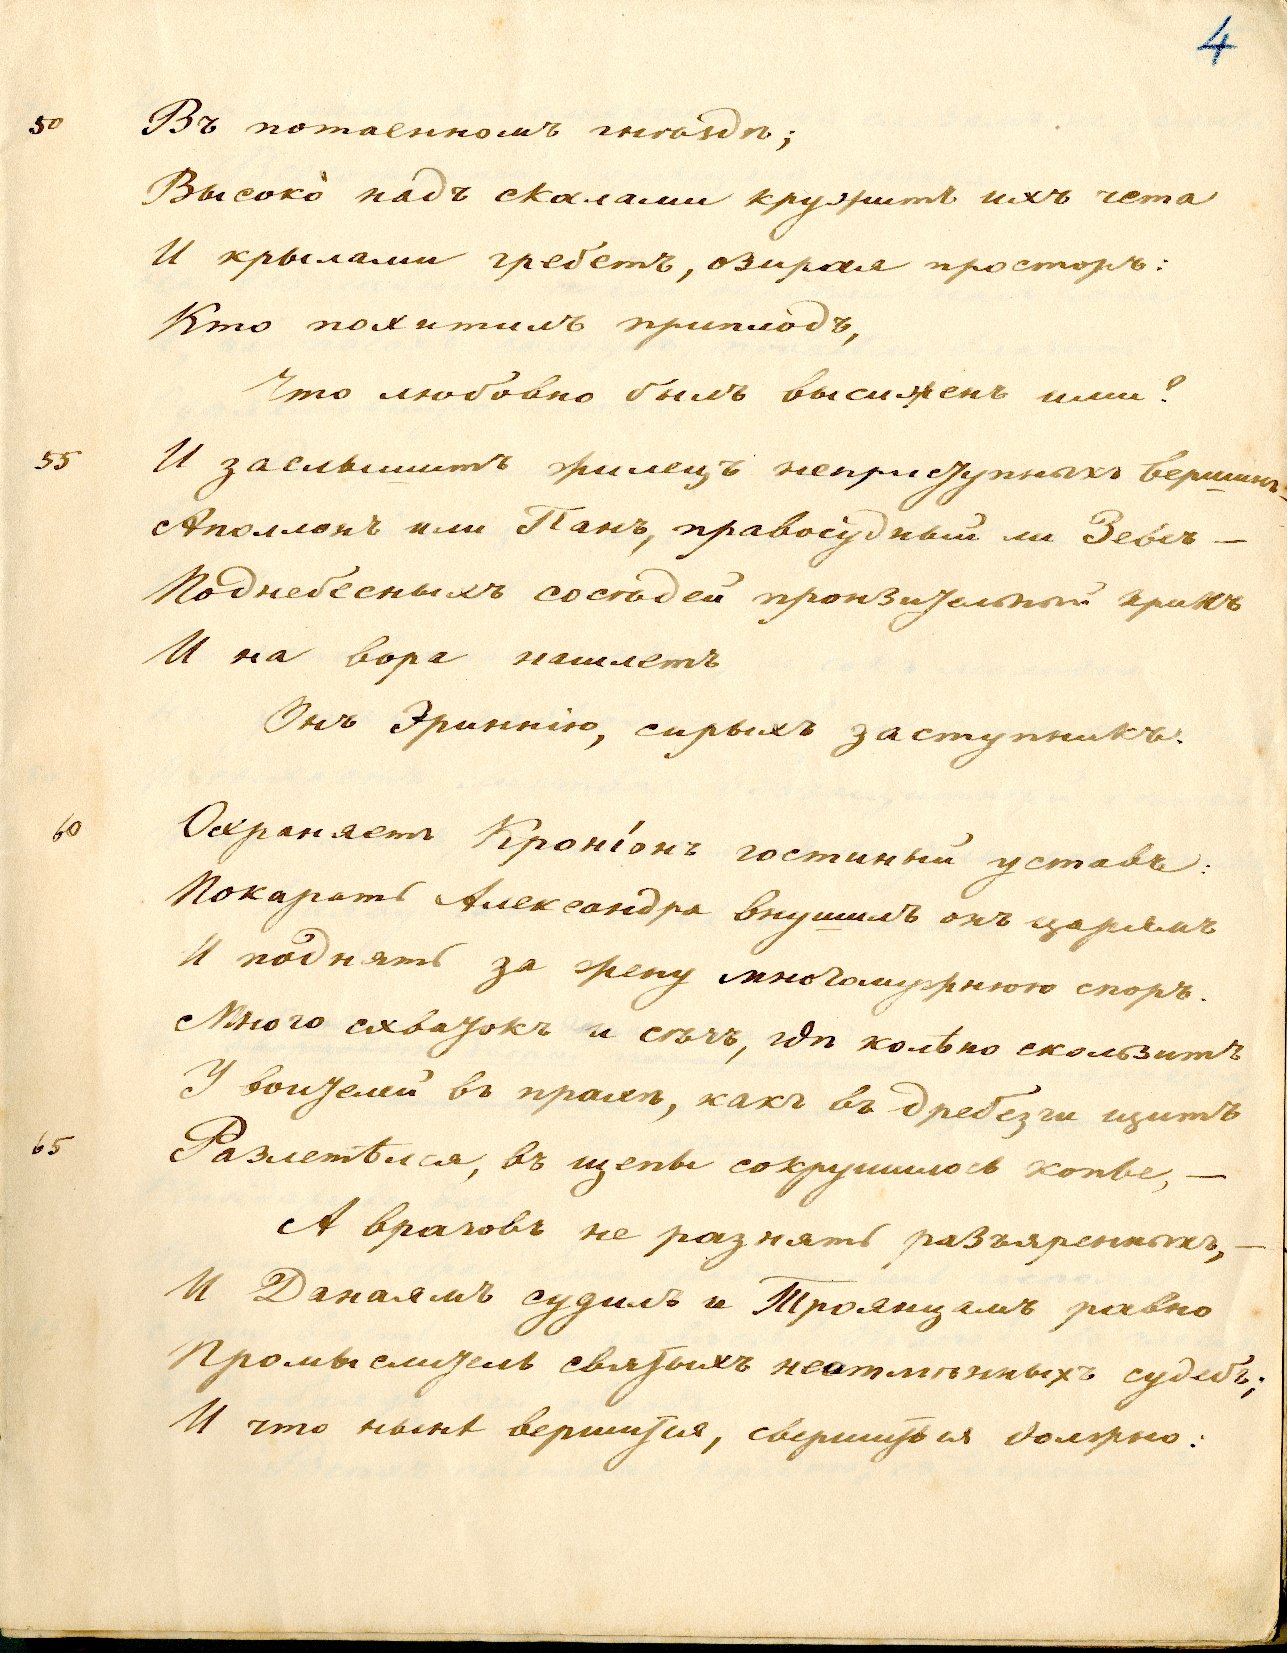 4
50 Въ потаенномъ гнѣздѣ;
Высоко̀ надъ скалами кружитъ ихъ чета
И крылами гребетъ, озирая просторъ:
Кто похитилъ приплодъ,
Что любовно былъ высиженъ ими?
55 И заслышитъ жилецъ неприступныхъ вершинъ —
Аполлонъ или Панъ, правосудный ли Зевсъ —
Поднебесныхъ сосѣдей пронзительный крикъ
И на вора нашлетъ
Онъ Эриннію, сирыхъ заступникъ.
60 Охраняетъ Кроніонъ гостиный уставъ:
Покарать Александра внушилъ онъ царямъ
И поднять за жену многомужнюю споръ.
Много схватокъ и сѣчъ, гдѣ колѣно скользитъ
У воителей въ прахѣ, какъ въ дребезги щитъ
65 Разлетѣлся, въ щепы сокрушилось копье, —
А враговъ не разнять разъяренныхъ, —
И Данаямъ судилъ и Троянцамъ равно
Промыслитель святыхъ неотмѣнныхъ судебъ;
И что нынѣ вершится, свершиться должно: